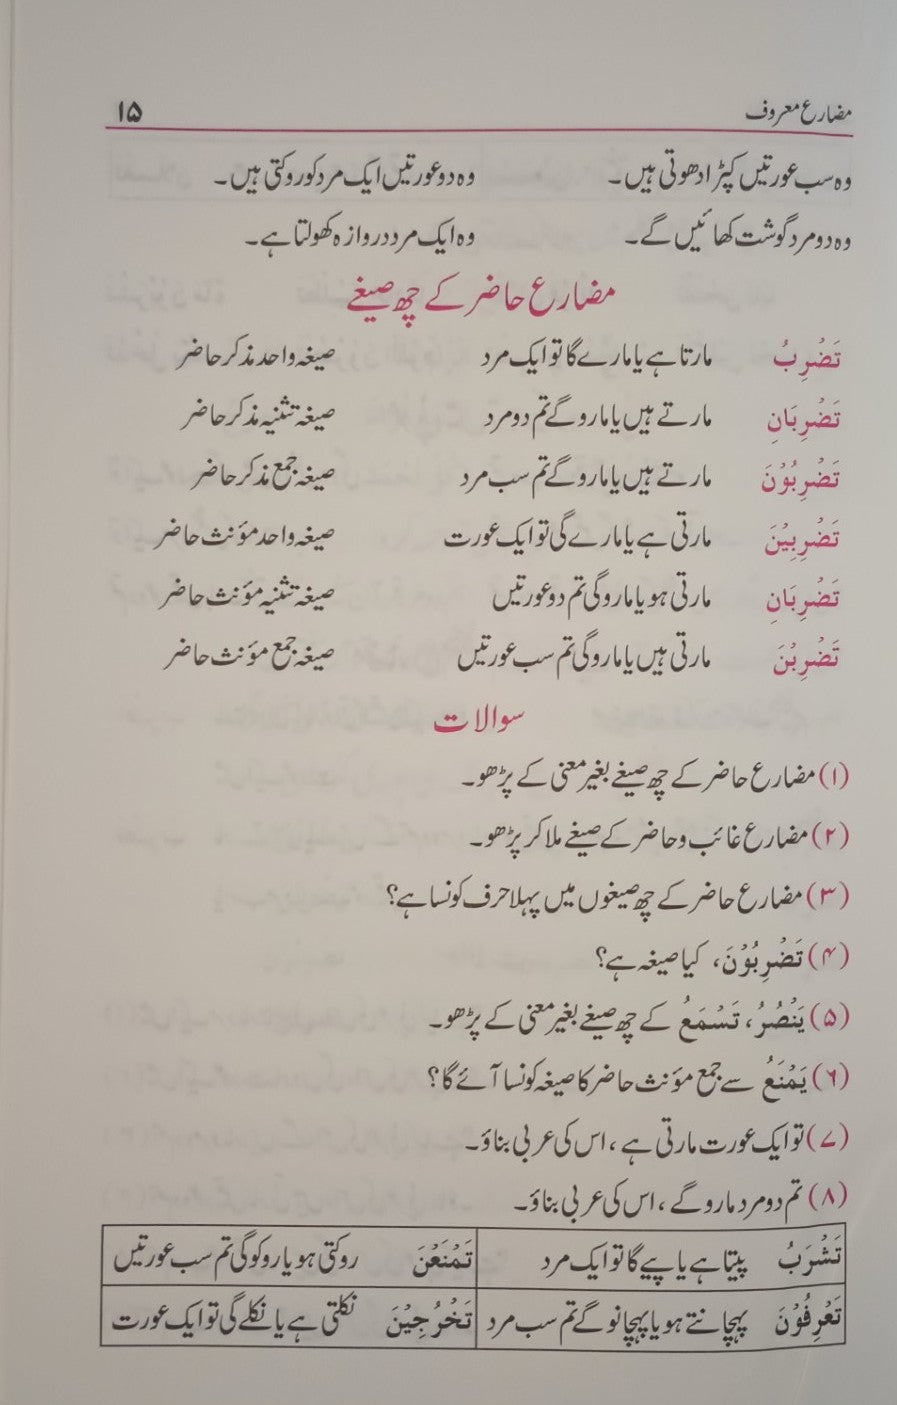 مضارع معروف ۱۵
وہ سب عورتیں کپڑا دھوتی ہیں۔ وہ دو عورتیں ایک مرد کو روکتی ہیں۔
وہ دو مرد گوشت کھائیں گے۔ وہ ایک مرد دروازہ کھولتا ہے۔
مضارع حاضر کے چھ صیغے
تَضْرِبُ مارتا ہے یا مارے گا تو ایک مرد صیغہ واحد مذکر حاضر
تَضْرِبَانِ مارتے ہیں یا مارو گے تم دو مرد صیغہ تثنیہ مذکر حاضر
تَضْرِبُوْنَ مارتے ہیں یا مارو گے تم سب مرد صیغہ جمع مذکر حاضر
تَضْرِبِیْنَ مارتی ہے یا مارے گی تو ایک عورت صیغہ واحد مؤنث حاضر
تَضْرِبَانِ مارتی ہو یا مارو گی تم دو عورتیں صیغہ تثنیہ مؤنث حاضر
تَضْرِبْنَ مارتی ہیں یا مارو گی تم سب عورتیں صیغہ جمع مؤنث حاضر
سوالات
(۱) مضارع حاضر کے چھ صیغے بغیر معنی کے پڑھو۔
(۲) مضارع غائب و حاضر کے صیغے ملا کر پڑھو۔
(۳) مضارع حاضر کے چھ صیغوں میں پہلا حرف کونسا ہے؟
(۴) تَضْرِبُوْنَ، کیا صیغہ ہے؟
(۵) یَنْصُرُ، تَسْمَعُ کے چھ صیغے بغیر معنی کے پڑھو۔
(۶) یَمْنَعُ سے جمع مؤنث حاضر کا صیغہ کونسا آئے گا؟
(۷) تو ایک عورت مارتی ہے، اس کی عربی بناؤ۔
(۸) تم دو مرد مارو گے، اس کی عربی بناؤ۔
تَشْرَبُ پیتا ہے یا پیے گا تو ایک مرد تَمْنَعْنَ روکتی ہو یا روکو گی تم سب عورتیں
تَعْرِفُوْنَ پہچانتے ہو یا پہچانو گے تم سب مرد تَخْرُجِیْنَ نکلتی ہے یا نکلے گی تو ایک عورت